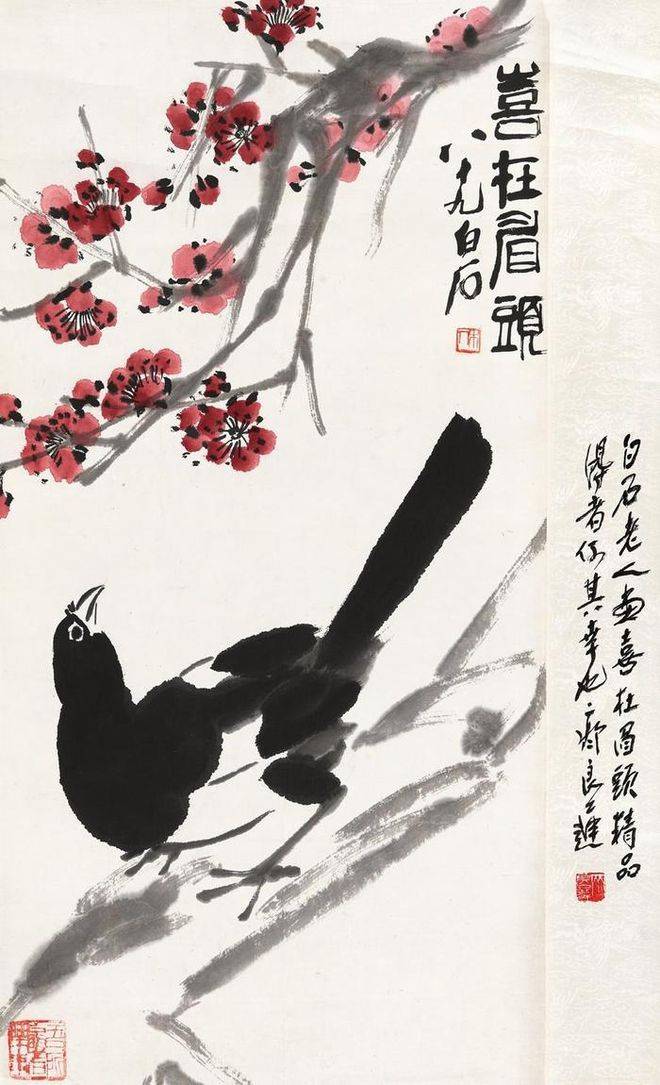 喜在眉頭
八十九白石
白石老人畫喜在眉頭精品
得者何其幸也 齊良遲